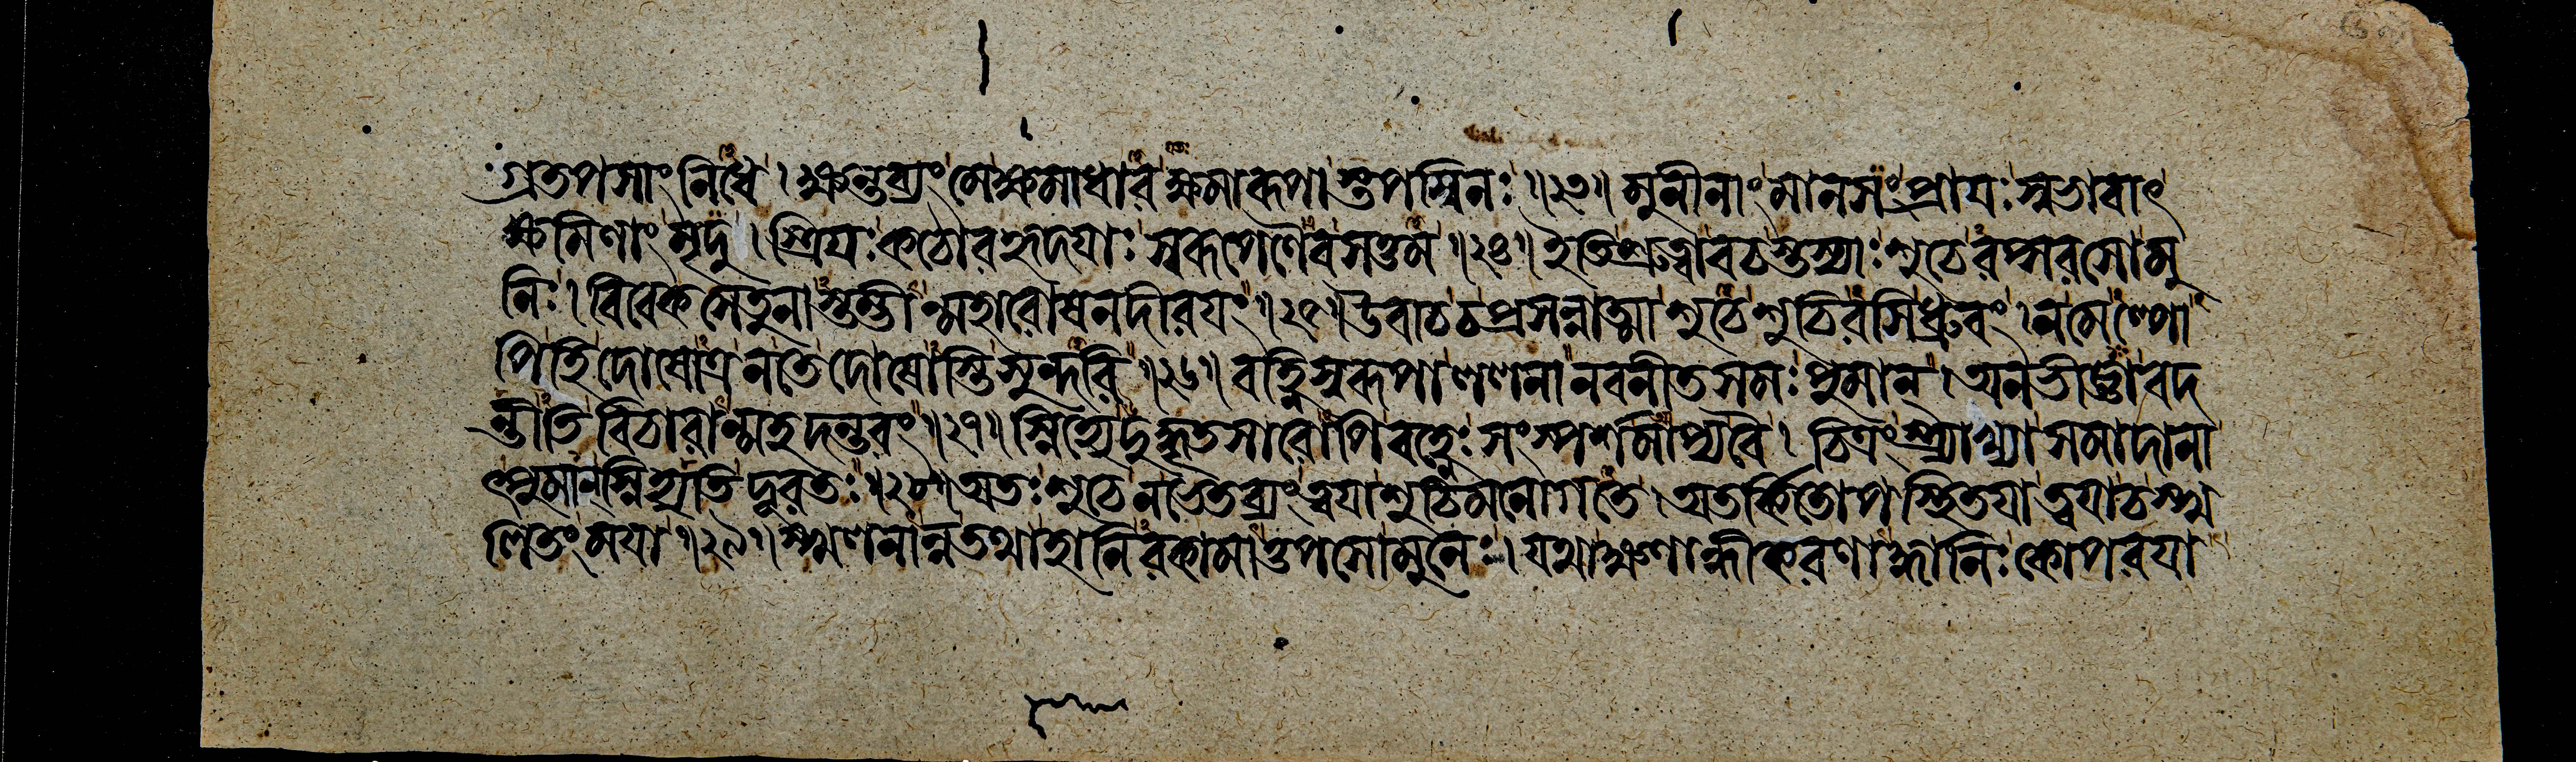 গ্রতপসাং নিধে । ক্ষন্তব্যং মে ক্ষমাধার ক্ষমারূপাস্তপস্বিনঃ ॥২৩॥ মুনীনাং মানসং প্রাযঃ স্বভাবাৎ
ক্ষমিণাং মৃদু । স্ত্রিযঃ কঠোরহৃদযাঃ স্বরূপেণৈব সত্তম ॥২৪॥ ইতি শ্রুত্বা বচস্তস্যাঃ শুচেরপ্সরসো মু
নিঃ । বিবেকসেতুনাস্তম্ভীন্মহারোষনদীরযং ॥২৫॥ উবাচ চ প্রসন্নাত্মা শুচে শুচিরসি ধ্রুবং । ন মেল্পো
পি হি দোষোত্র ন তে দোষোস্তি সুন্দরি ॥২৬॥ বহ্নিস্বরূপা ললনা নবনীতসমঃ পুমান্ । অনভিজ্ঞা বদ
ন্তীতি বিচারান্মহদন্তরং ॥২৭॥ স্নিহ্যেদুদ্ধৃতসারোপি বহ্নেঃ সংস্পর্শমাপ্য বৈ । চিত্রং স্ত্র্যাখ্যা সমাদানা
ৎপুমান্ স্নিহ্যতি দূরতঃ ॥২৮॥ অতঃ শুচে ন ভেতব্যং ত্বযা শুচিমনোগতে । অতর্কিতোপস্থিতযা ত্বযা চ স্খ
লিতং মযা ॥২৯॥ স্খলনান্ন তথা হানিরকামাত্তপসো মুনেঃ । যথা ক্ষণান্ধীকরণাদ্ধানিঃ কোপরযা